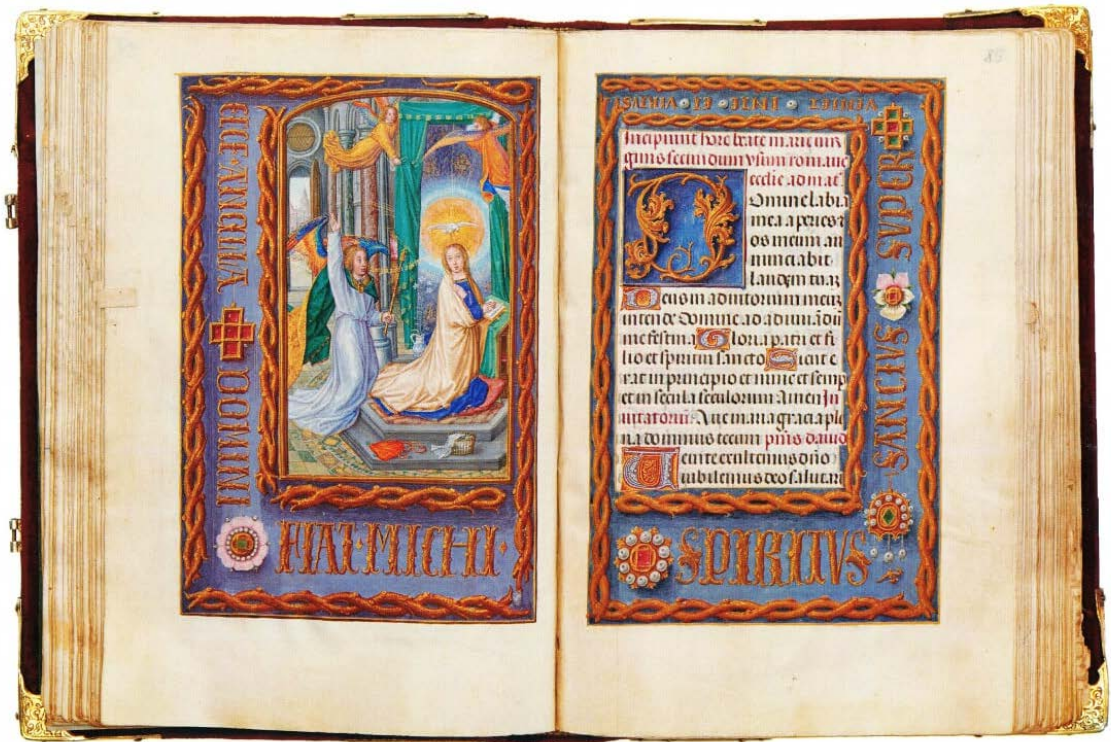 DOMINI
FIAT·MICHI·
85
SVPER
SANCTVS
SPIRITVS
Incipiunt hore beate marie uir
ginis secundum vsum romane
ecclie ad mat.
Domine labia
mea aperies et
os meum an
nunciabit
laudem tuaz
Deus in adiutorium meuz
intende Domine ad adiuuādū
me festina Gloria patri et fi
lio et spiritui sancto Sicut e
rat in principio et nunc et semp
et in secula seculorum amen In
uitatoriū. Aue maria gracia ple
na dominus tecum pmus dauid
Uenite exultemus dño
iubilemus deo salutari